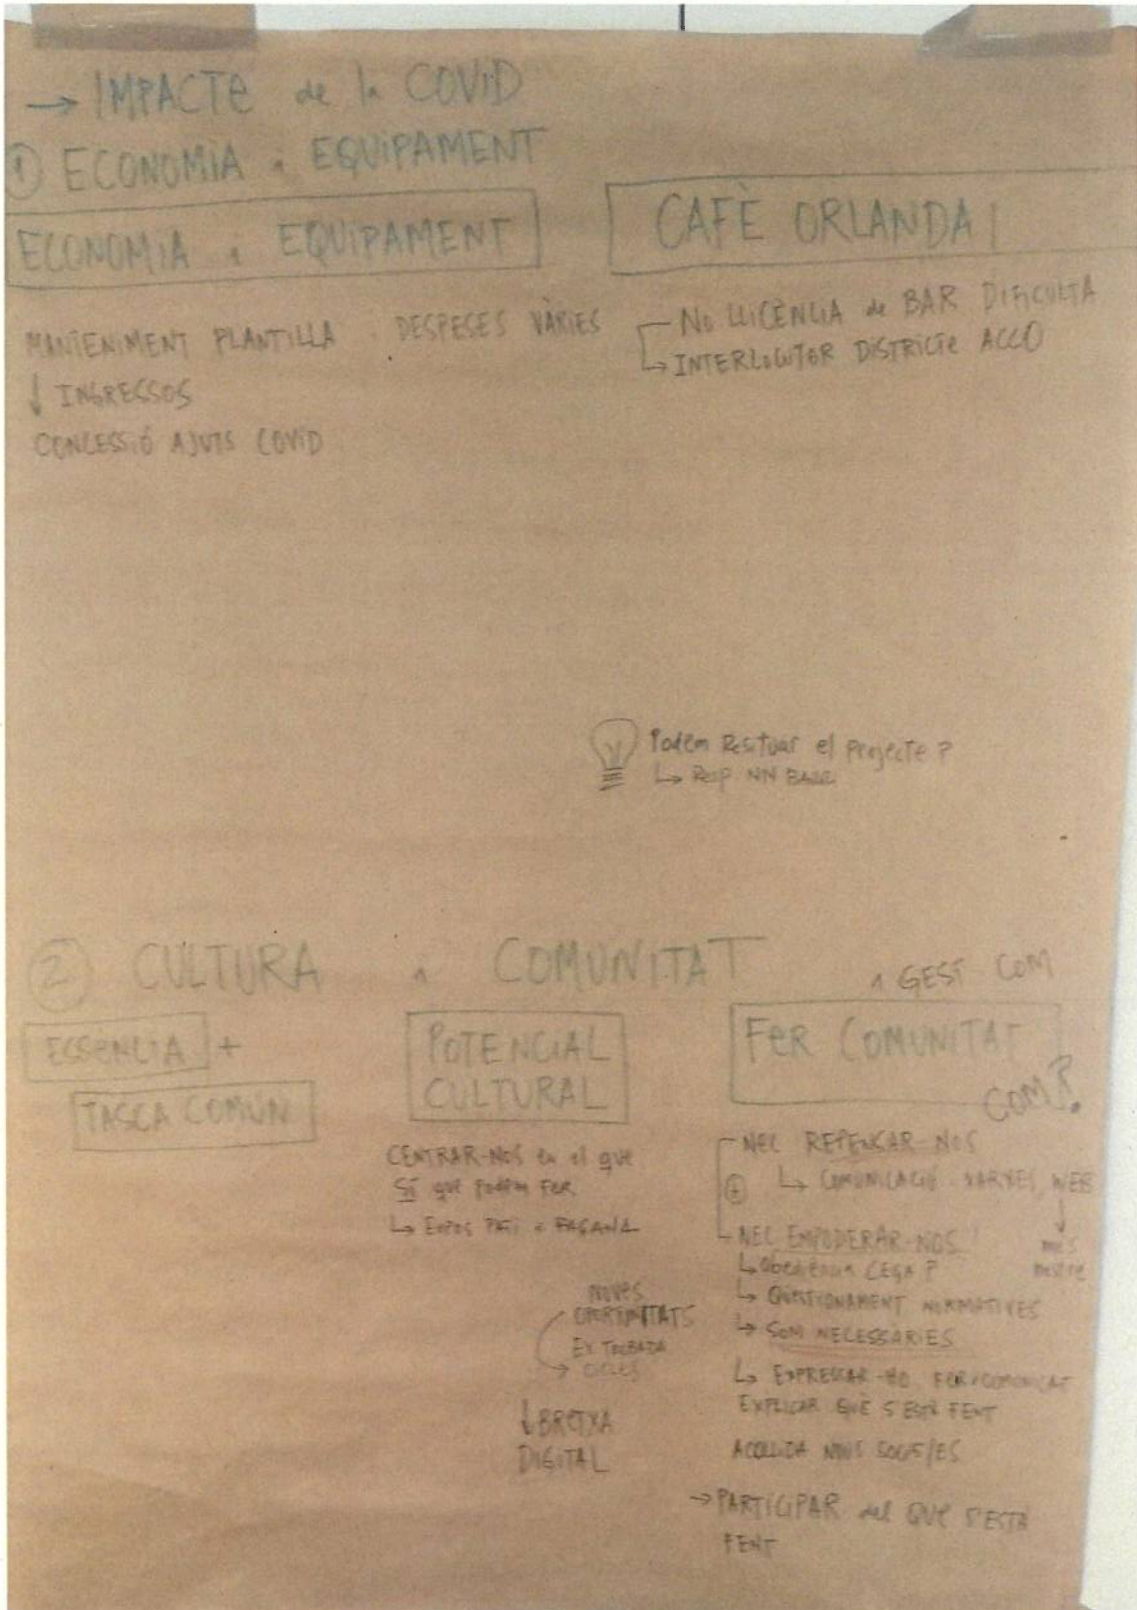 → IMPACTE de la COVID
① ECONOMIA i EQUIPAMENT
ECONOMIA i EQUIPAMENT
MANTENIMENT PLANTILLA · DESPESES VÀRIES
↓ INGRESSOS
CONCESSIÓ AJUTS COVID
CAFÈ ORLANDAI
No LLICÈNCIA de BAR DIFICULTA
↳ INTERLOCUTOR DISTRICTE ACCO
Podem Resituar el projecte?
↳ Resp. NN
② CULTURA i COMUNITAT
ESSÈNCIA +
TASCA COMÚN
POTENCIAL
CULTURAL
CENTRAR-NOS en el que
SÍ que Podem FER
↳ Expos PATI i FAÇANA
NOVES
OPORTUNITATS
Ex
→ CICLES
↓ BRETXA
DIGITAL
i GEST COM
FER COMUNITAT
COM?
NEC REPENSAR-NOS
⊕ ↳ COMUNICACIÓ · XARXES, WEB
↓
més
NEC EMPODERAR-NOS!
↳ obediència CEGA?
↳ QÜESTIONAMENT NORMATIVES
→ SOM NECESSÀRIES
↳ EXPRESSAR-HO, FER COMUNICAT
EXPLICAR QUÈ S'ESTÀ FENT
ACOLLIDA NOUS SOCIS/ES
→ PARTICIPAR del QUE S'ESTÀ
FENT